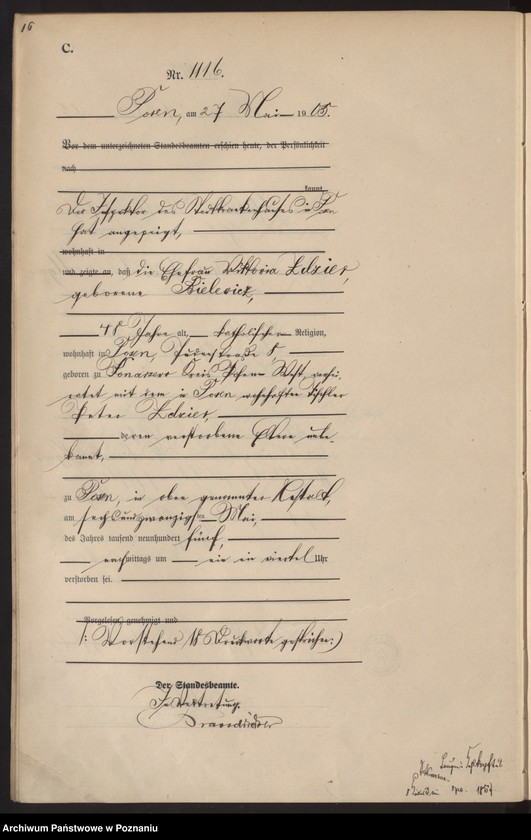 16
C.
Nr. 1116.
Posen, am 27 Mai 1905.
Vor dem unterzeichneten Standesbeamten erschien heute, der Persönlichkeit
nach
kannt,
Der Inspektor des Stadtkrankenhauses in Posen
hat angezeigt,
wohnhaft in
und zeigte an, daß die Ehefrau Viktoria
geborene
48 Jahre alt, katholischer Religion,
wohnhaft in Posen, 8,
geboren zu Kreis Posen West, verhei-
ratet mit dem in Posen wohnhaften Tischler
Peter
deren verstorbene Eltern unbe-
kannt,
zu Posen, in oben genannter Anstalt,
am sechsundzwanzigsten Mai,
des Jahres tausend neunhundert fünf,
nachmittags um ein ein viertel Uhr
verstorben sei.
Vorgelesen, genehmigt und
/: Vorstehend 18 Druckworte gestrichen :)
Der Standesbeamte.
In Vertretung.
Archiwum Państwowe w Poznaniu